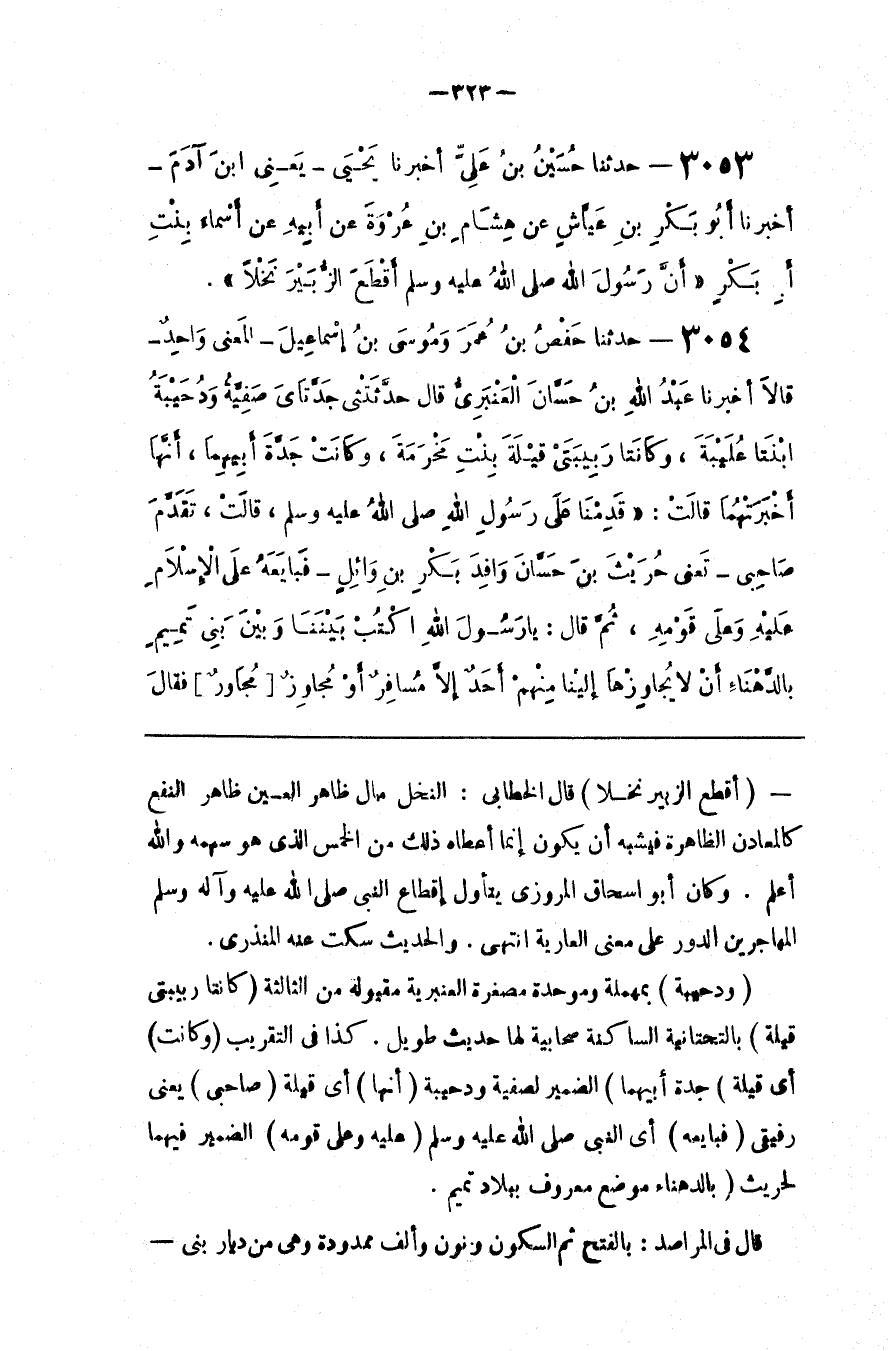 — ٣٢٣ —
٣٠٥٣ — حدثنا حُسَيْنُ بنُ عَلِيٍّ أخبرنا يَحْيَى ـ يَعـنِى ابنَ آدَمَ ـ
أخبرنا أَبُو بَـكْرِ بنِ عَيَّاشٍ عن هِشَامِ بنِ عُرْوَةَ عن أَبِيهِ عن أَسْمَاء بِنْتِ
أَبِى بَـكْرٍ « أَنَّ رَسُولَ الله صلى اللهُ عليه وسلم أَقْطَعَ الزُّبَيْرَ نَخْلاً » .
٣٠٥٤ — حدثنا حَفْصُ بنُ عُمَرَ وَمُوسَى بنُ إِسْمَاعِيلَ ـ المَعنى وَاحِدٌ ـ
قالاَ أخبرنا عَبْدُ اللهِ بنُ حَسَّانَ الْعَنْبَرِىُّ قال حدَّثَتْنِى جَدَّتَاىَ صَفِيَّةُ وَدُحَيْبَةُ
ابْنَتَا عُلَيْبَةَ ، وكَانَتَا رَبِيبَتَىْ قَيْلَةَ بِنْتِ مَخْرَمَةَ ، وكَانَتْ جَدَّةَ أَبِيهِمَا ، أَنَّهَا
أَخْبَرَتْهُمَا قالَتْ : « قَدِمْنَا عَلَى رَسُولِ اللهِ صلى اللهُ عليه وسلم ، قالَتْ ، تَقَدَّمَ
صَاحِبِى ـ تَعنى حُرَيْثَ بنَ حَسَّانَ وَافِدَ بَـكْرِ بنِ وَائِلٍ ـ فَبَايَعَهُ عَلَى الْإِسْلَامِ
عَلَيْهِ وَعَلَى قَوْمِهِ ، ثُمَّ قال : يارَسُـولَ اللهِ اكْتُبْ بَيْنَنَـا وَبَيْنَ بَنِي تَمِيـمٍ
بالدَّهْنَاءِ أَنْ لا يُجَاوِزْهَا إِلَيْنَا مِنْهِمْ أَحَدٌ إِلاَّ مُسَافِرٌ أَوْ مُجاوِزٌ [ مُجَاورٌ ] فقالَ
— ( أقطع الزبير نخـلا ) قال الخطابى : النخل مال ظاهر العـين ظاهر النفع
كالمعادن الظاهرة فيشبه أن يكون إنما أعطاه ذلك من الخمس الذى هو سهمه والله
أعلم . وكان أبو اسحاق المروزى يتأول إقطاع النبى صلى الله عليه وآله وسلم
المهاجرين الدور على معنى العارية انتهى . والحديث سكت عنه المنذرى .
( ودحيبة ) بمهملة وموحدة مصغرة العنبرية مقبولة من الثالثة ( كانتا ربيبتى
قيلة ) بالتحتانية الساكنة صحابية لها حديث طويل . كذا فى التقريب ( وكانت )
أى قيلة ) جدة أبيهما ) الضمير لصفية ودحيبة ( أنها ) أى قيلة ( صاحبى ) يعنى
رفيقى ( فبايعه ) أى النبى صلى الله عليه وسلم ( عليه وعلى قومه ) الضمير فيهما
لحريث ( بالدهناء موضع معروف ببلاد تميم .
قال فى المراصد : بالفتح ثم السكون ونون وألف ممدودة وهى من ديار بنى —